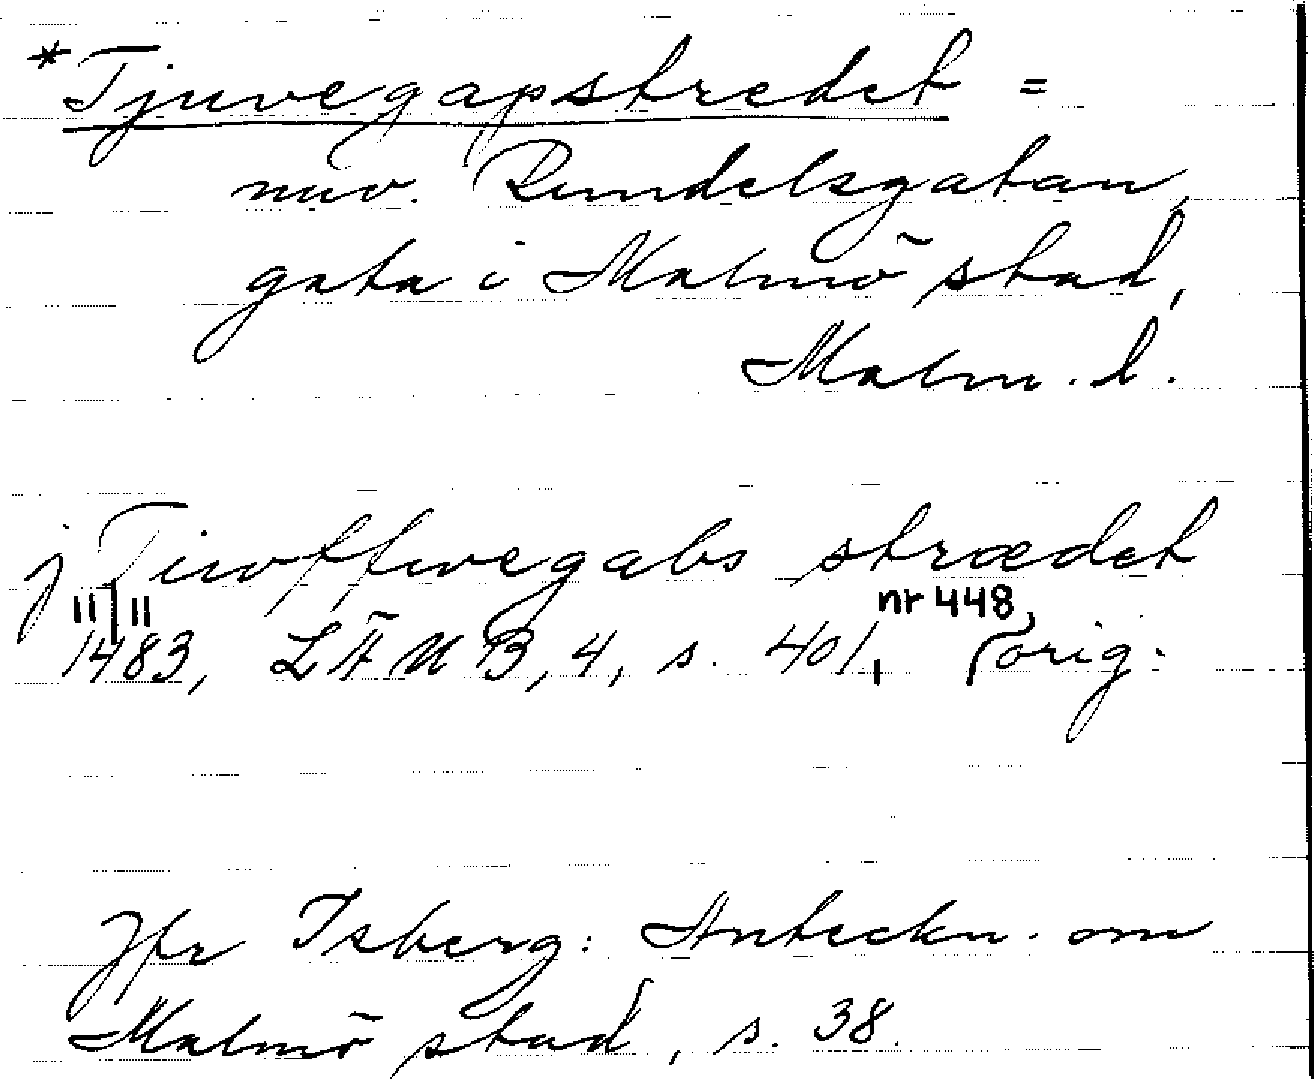 *Tjuvegapstredet =
nuv. Rundelsgatan,
gata i Malmö stad,
Malm. l.
j Tiwffwegabs strædet
11/11 nr 448,
1483, LÄUB, 4, s. 401, orig.
Jfr Isberg: Anteckn. om
Malmö stad, s. 38.